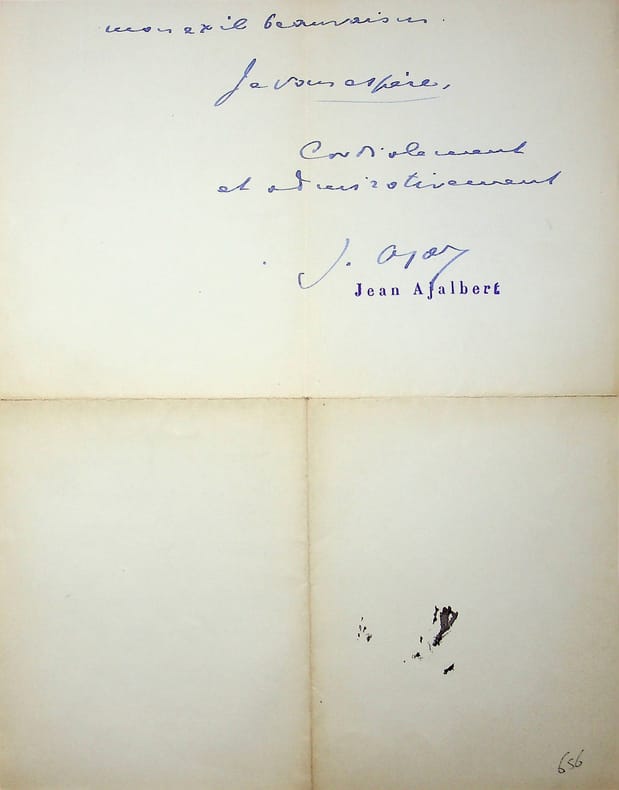 mon exil beauvaisin.
Je vous espère,
Cordialement
et admirativement
J. Ajal
Jean Ajalbert
656